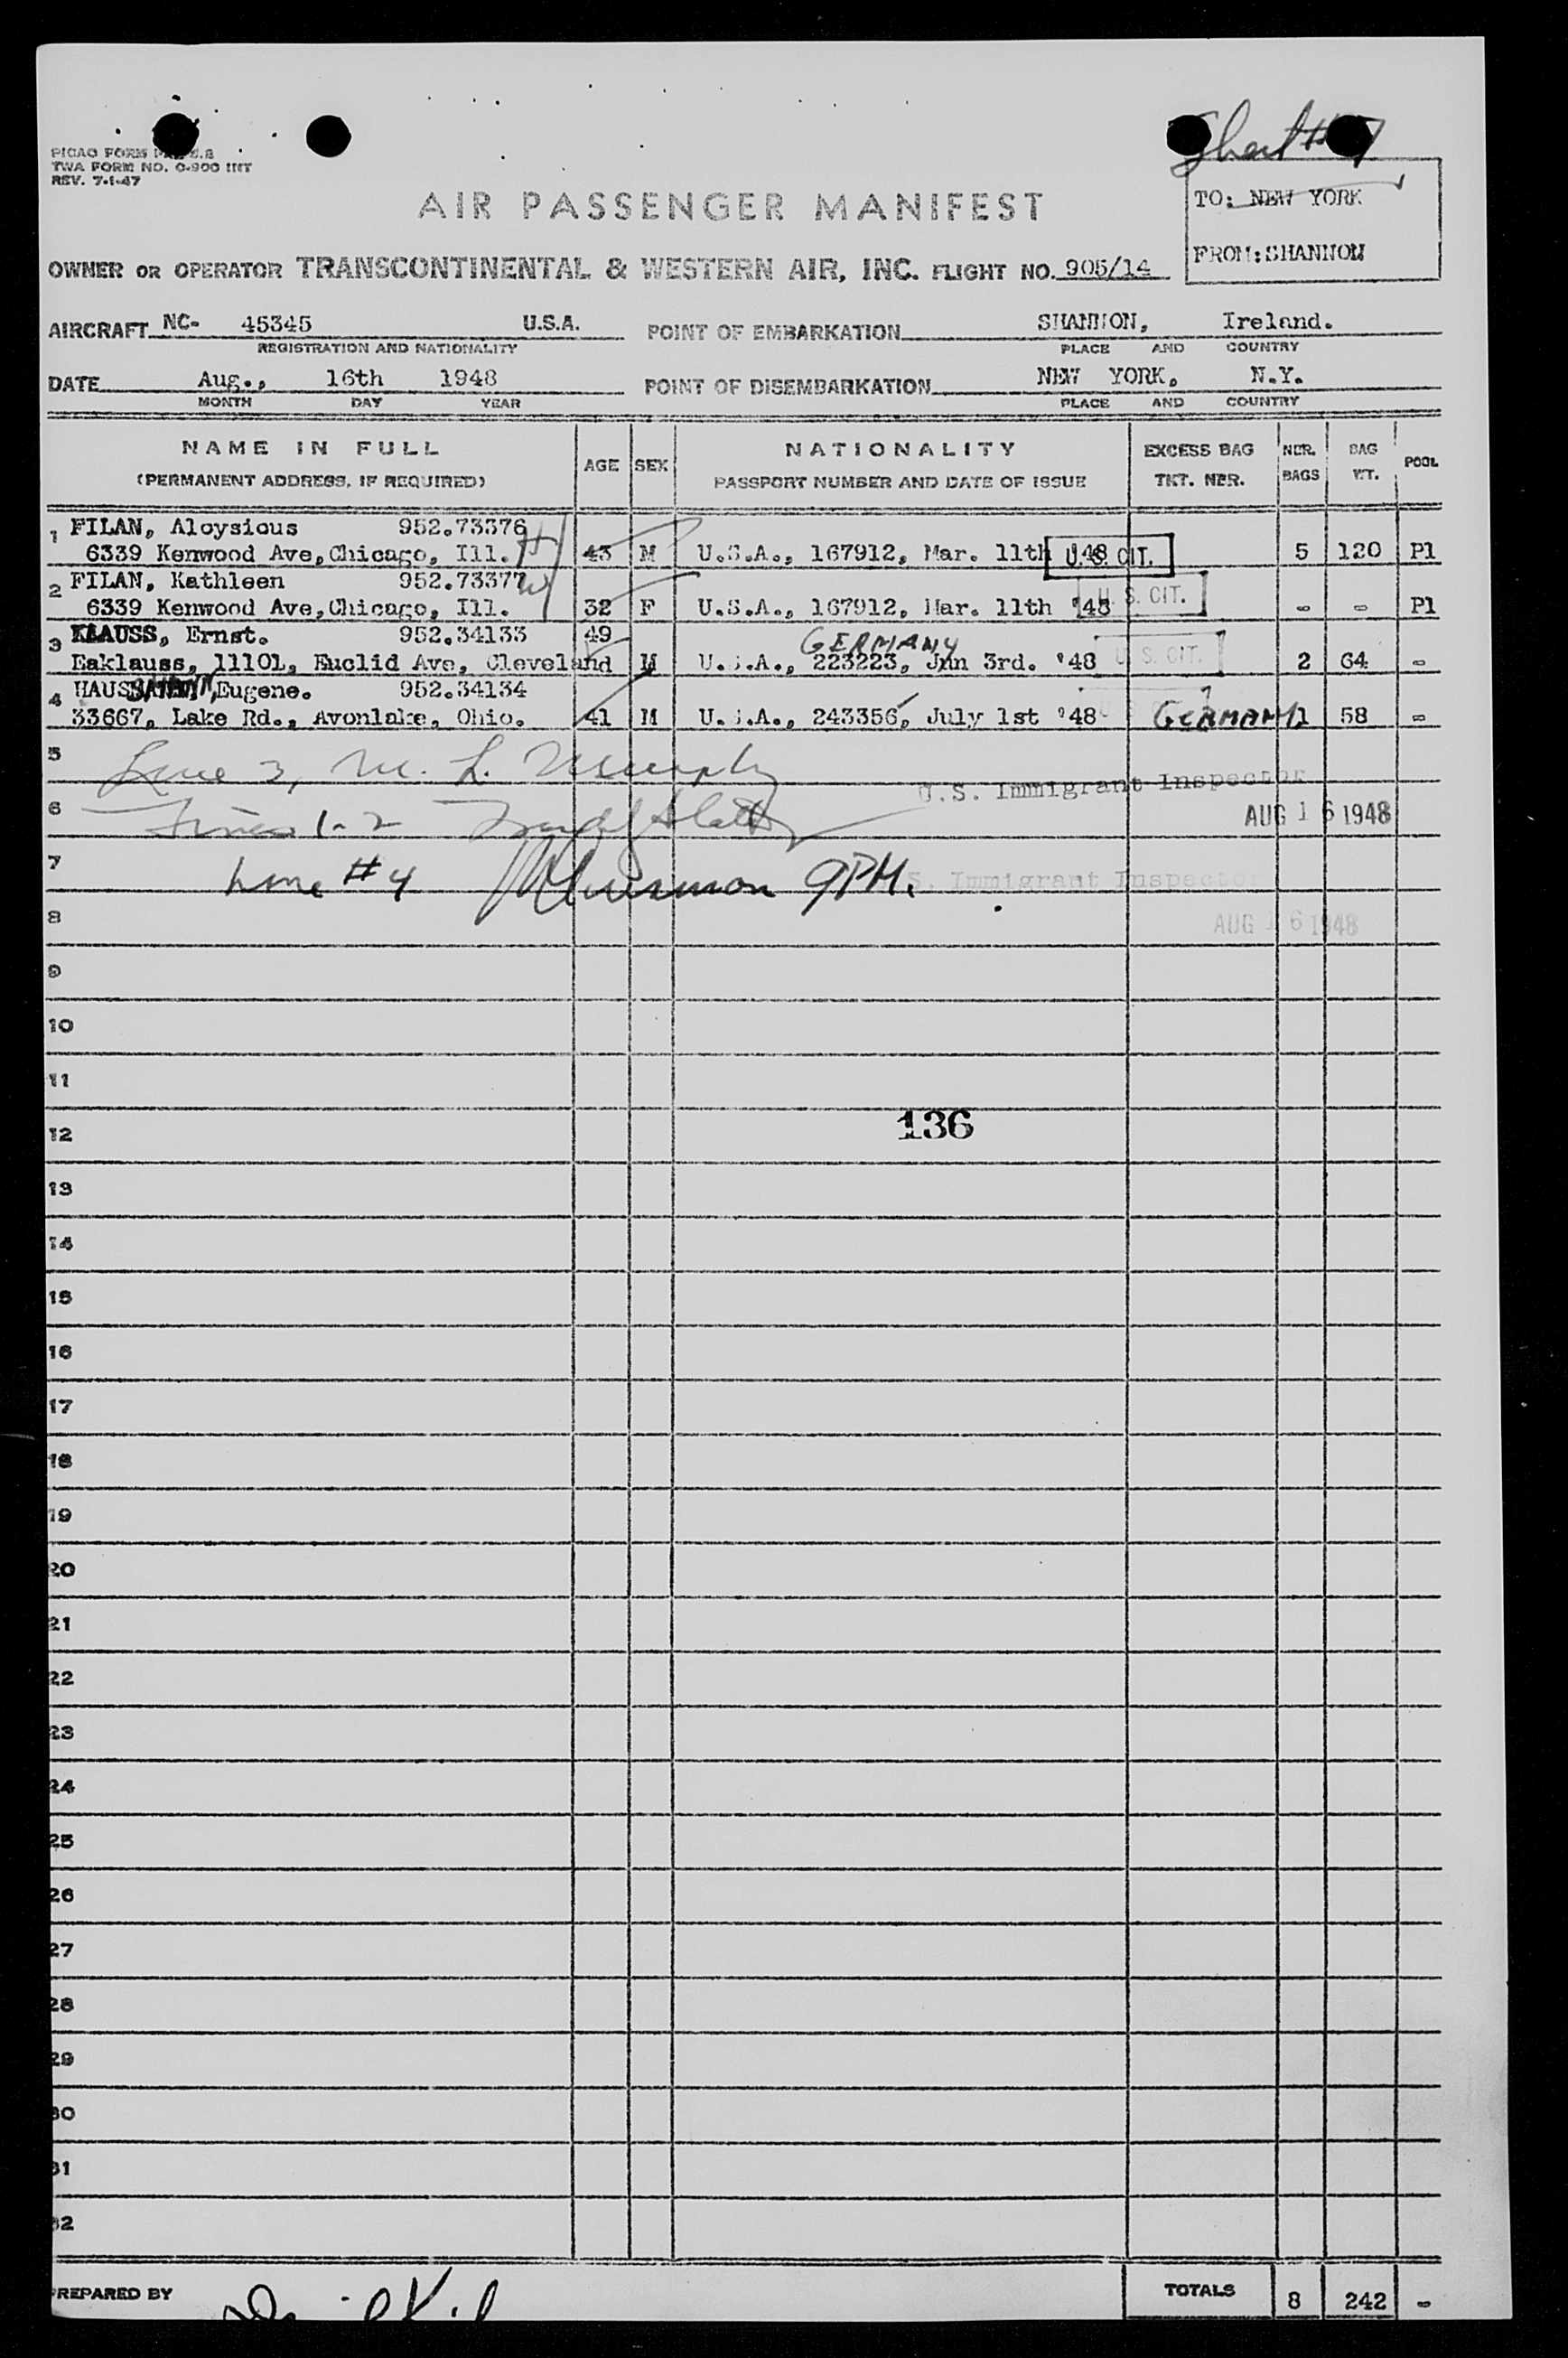 Sheet #7
PICAO FORM
TWA FORM NO. 0-900 INT
REV. 7-1-47
AIR PASSENGER MANIFEST
TO: NEW YORK
FROM: SHANNON
OWNER OR OPERATOR TRANSCONTINENTAL & WESTERN AIR, INC. FLIGHT NO. 905/14
AIRCRAFT NC- 45345 U.S.A. POINT OF EMBARKATION SHANNON, Ireland.
REGISTRATION AND NATIONALITY PLACE AND COUNTRY
DATE Aug., 16th 1948 POINT OF DISEMBARKATION NEW YORK, N.Y.
MONTH DAY YEAR PLACE AND COUNTRY
NAME IN FULL AGE SEX NATIONALITY EXCESS BAG NBR. BAG POOL
(PERMANENT ADDRESS, IF REQUIRED) PASSPORT NUMBER AND DATE OF ISSUE TKT. NBR. BAGS WT.
1 FILAN, Aloysious 952.73376 H
6339 Kenwood Ave, Chicago, Ill. 43 M U.S.A., 167912, Mar. 11th '48 U.S. CIT. 5 120 P1
2 FILAN, Kathleen 952.73377 W
6339 Kenwood Ave, Chicago, Ill. 32 F U.S.A., 167912, Mar. 11th '48 U.S. CIT. - - P1
3 KLAUSS, Ernst. 952.34133 49 GERMANY
Eaklauss, 11101, Euclid Ave, Cleveland M U.S.A., 223223, Jun 3rd. '48 U.S. CIT. 2 64 -
4 HAUSSMANN, Eugene. 952.34134
33667, Lake Rd., Avonlake, Ohio. 41 M U.S.A., 243356, July 1st '48 GERMANY 1 58 -
5 Line 3, M. L. Murphy
U.S. Immigrant Inspector
6 Lines 1-2
AUG 16 1948
7 Line #4 9PM.
U.S. Immigrant Inspector
8
AUG 16 1948
9
10
11
12 136
13
14
15
16
17
18
19
20
21
22
23
24
25
26
27
28
29
30
31
32
PREPARED BY TOTALS 8 242 -